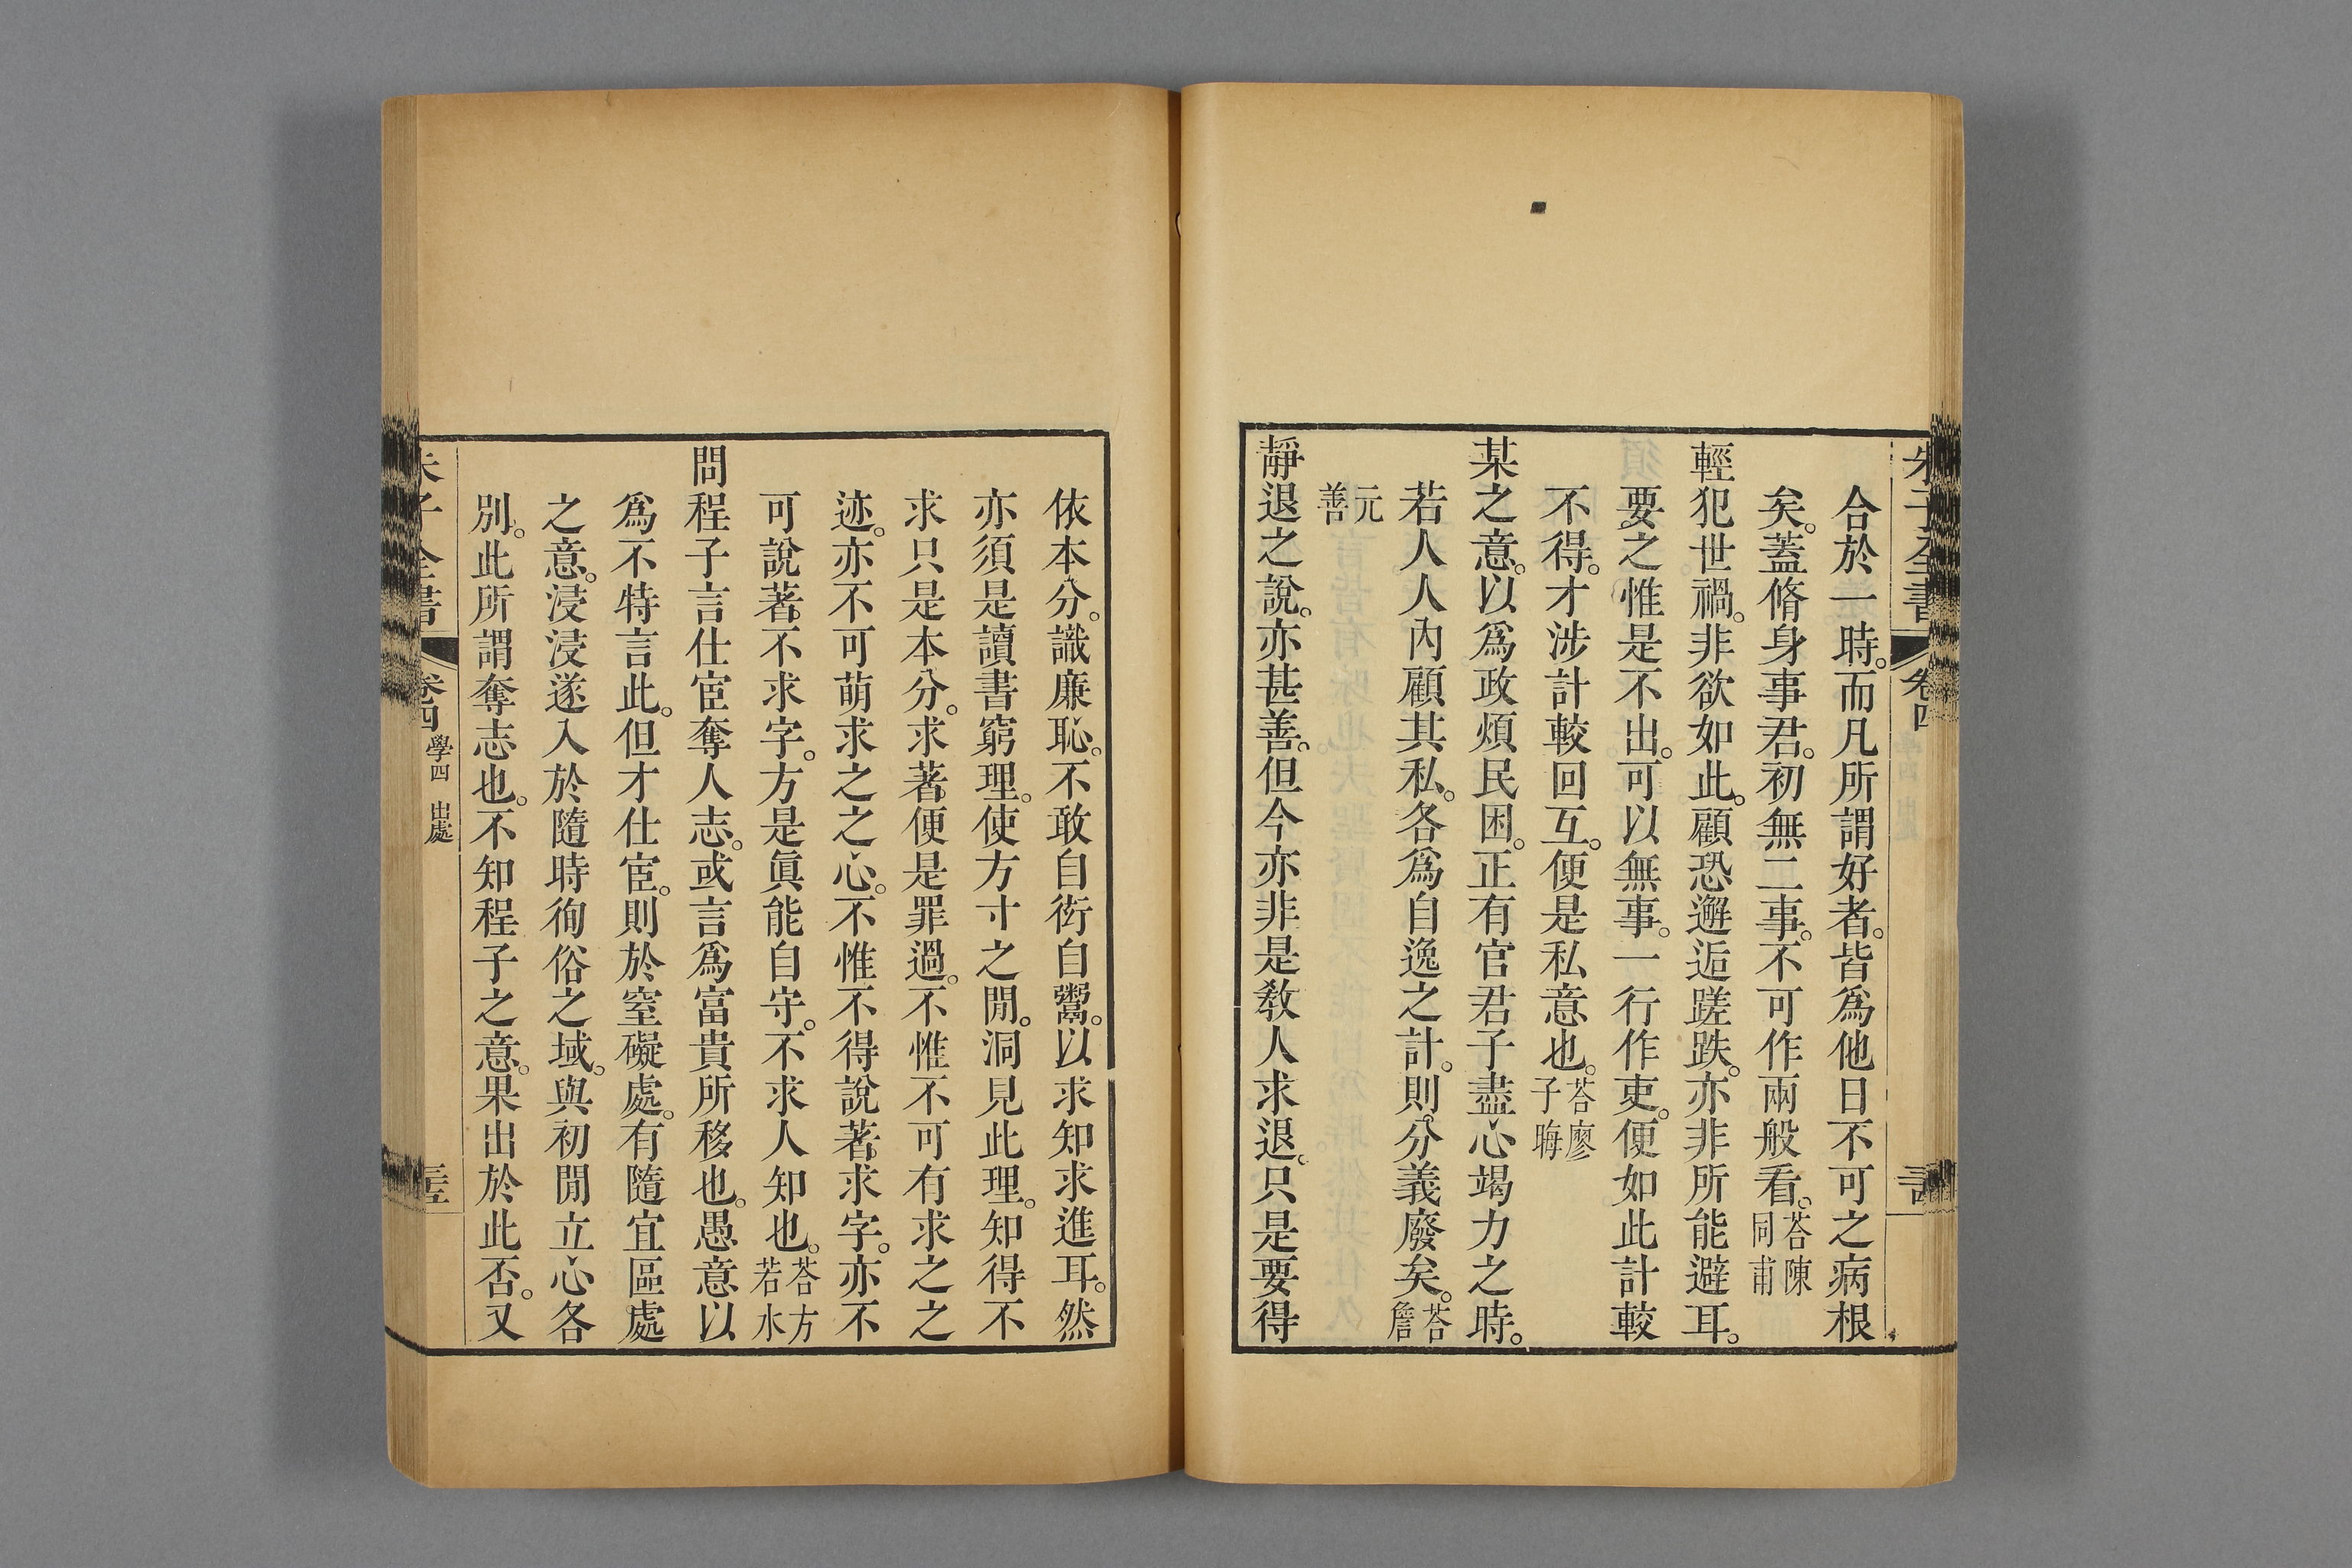 朱子全書 卷四
合於一時。而凡所謂好者。皆爲他日不可之病根
矣。蓋脩身事君。初無二事。不可作兩般看。荅陳同甫
輕犯世禍。非欲如此。顧恐邂逅蹉跌。亦非所能避耳。
要之惟是不出。可以無事。一行作吏。便如此計較
不得。才涉計較回互。便是私意也。荅廖子晦
某之意。以爲政煩民困。正有官君子盡心竭力之時。
若人人內顧其私。各爲自逸之計。則分義廢矣。荅詹
元善
靜退之說。亦甚善。但今亦非是敎人求退。只是要得
依本分。識廉恥。不敢自衒自鬻。以求知求進耳。然
亦須是讀書窮理。使方寸之閒。洞見此理。知得不
求只是本分。求著便是罪過。不惟不可有求之之
迹。亦不可萌求之之心。不惟不得說著求字。亦不
可說著不求字。方是眞能自守。不求人知也。荅方若水
問程子言仕宦奪人志。或言爲富貴所移也。愚意以
爲不特言此。但才仕宦。則於窒礙處。有隨宜區處
之意。浸浸遂入於隨時徇俗之域。與初閒立心各
別。此所謂奪志也。不知程子之意。果出於此否。又
朱子全書 卷四 學四 出處